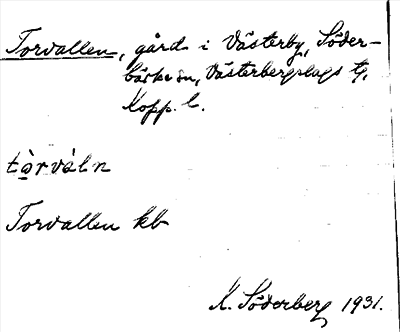 Torvallen, gård i Västerby, Söder-
bärke sn, Västerbergslags tg,
Kopp. l.
tòrváln
Torvallen kb
K. Söderberg 1931.